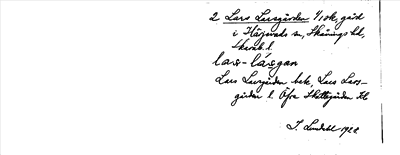 2 Lars Larsgården 1/1 ok, gård
i Härjevads sn, Skånings hd,
Skarab. l.
las-lásgan
Lars Larsgården bek, Lars Lars-
gården l. Öfre Skattegården Jb
J. Lindahl 1920